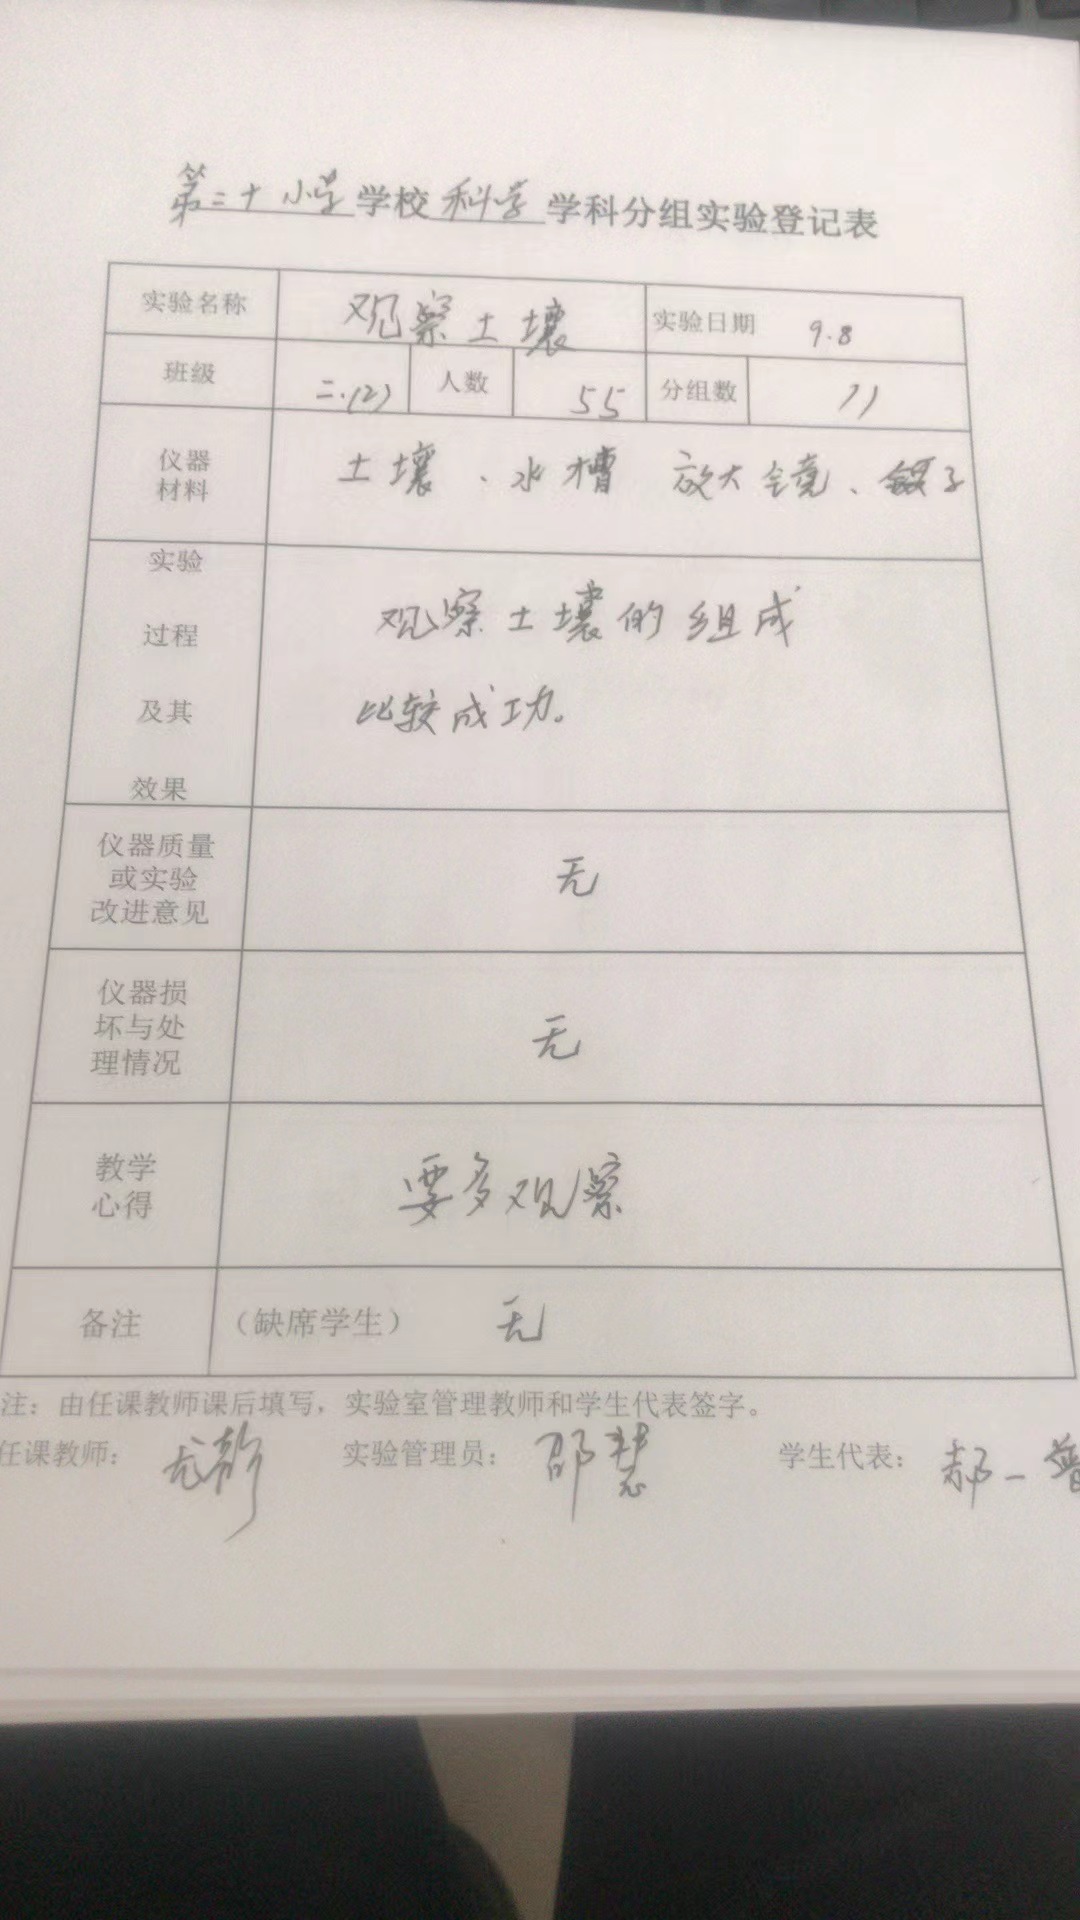 第二十小学学校科学学科分组实验登记表
实验名称 观察土壤 实验日期 9.8
班级 二.(2) 人数 55 分组数 11
仪器 材料 土壤、水槽 放大镜、镊子
实验
过程 观察土壤的组成
及其 比较成功。
效果
仪器质量
或实验 无
改进意见
仪器损
坏与处 无
理情况
教学
心得 要多观察
备注 (缺席学生) 无
注：由任课教师课后填写，实验室管理教师和学生代表签字。
任课教师： 实验管理员：邵慧 学生代表：郝一